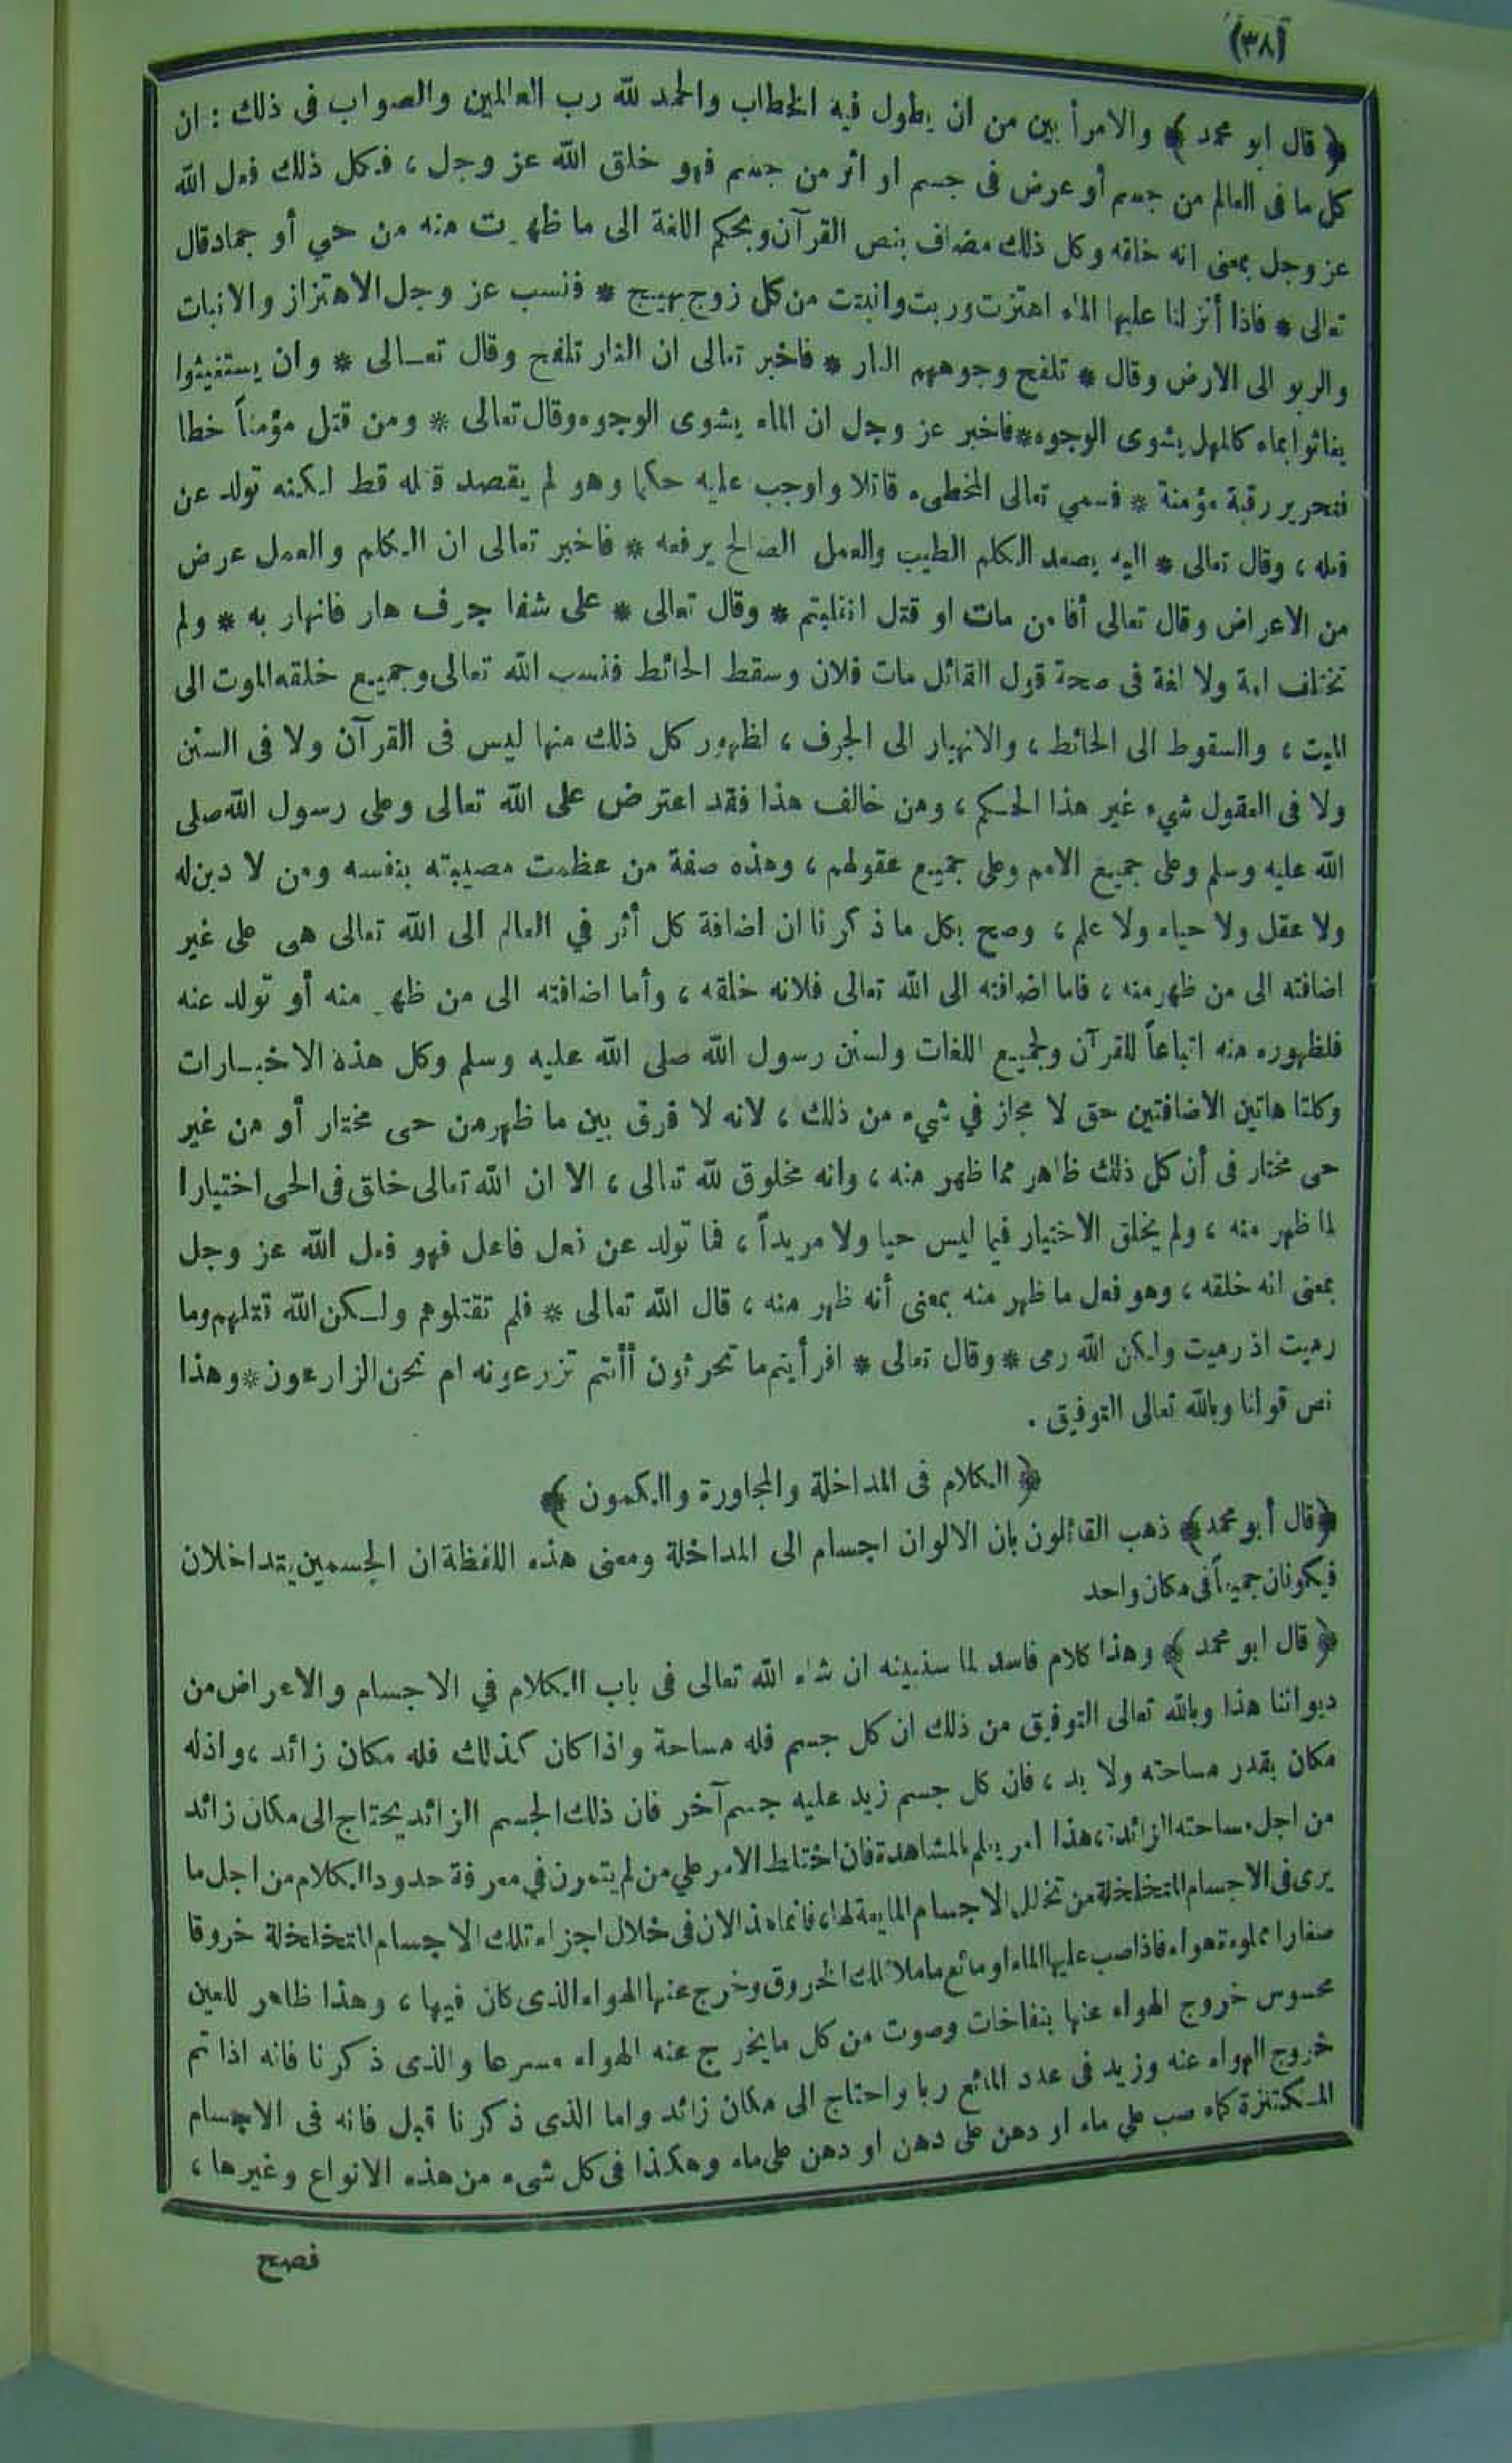 (٣٨)
﴿ قال ابو محمد ﴾ والامر أبين من ان يطول فيه الخطاب والحمد لله رب العالمين والصواب فى ذلك : ان
كل ما فى العالم من جسم أو عرض فى جسم او اثر من جسم فهو خلق الله عز وجل ، فكل ذلك فعل الله
عز وجل بمعنى انه خلقه وكل ذلك مضاف بنص القرآن وبحكم اللغة الى ما ظهرت منه من حي أو جماد قال
تعالى * فاذا أنزلنا عليها الماء اهتزت وربت وانبتت من كل زوج بهيج * فنسب عز وجل الاهتزاز والانبات
والربو الى الارض وقال * تلفح وجوههم النار * فاخبر تعالى ان النار تلفح وقال تعـالى * وان يستغيثوا
يغاثوا بماء كالمهل يشوى الوجوه*فاخبر عز وجل ان الماء يشوى الوجوه وقال تعالى * ومن قتل مؤمناً خطا
فتحرير رقبة مؤمنة * فسمي تعالى المخطىء قاتلا واوجب عليه حكما وهو لم يقصد قتله قط لكنه تولد عن
فعله ، وقال تعالى * اليه يصعد الكلم الطيب والعمل الصالح يرفعه * فاخبر تعالى ان الكلم والعمل عرض
من الاعراض وقال تعالى أفا من مات او قتل انقلبتم * وقال تعالى * على شفا جرف هار فانهار به * ولم
تختلف امة ولا لغة فى صحة قول القائل مات فلان وسقط الحائط فنسب الله تعالى وجميع خلقه الموت الى
الميت ، والسقوط الى الحائط ، والانهيار الى الجرف ، لظهور كل ذلك منها ليس فى القرآن ولا فى السنن
ولا فى العقول شيء غير هذا الحـكم ، ومن خالف هذا فقد اعترض على الله تعالى وعلى رسول الله صلى
الله عليه وسلم وعلى جميع الامم وعلى جميع عقولهم ، وهذه صفة من عظمت مصيبته بنفسه ومن لا دين له
ولا عقل ولا حياء ولا علم ، وصح بكل ما ذكرنا ان اضافة كل أثر في العالم الى الله تعالى هى على غير
اضافته الى من ظهر منه ، فاما اضافته الى الله تعالى فلانه خلقه ، وأما اضافته الى من ظهر منه أو تولد عنه
فلظهوره منه اتباعاً للقرآن ولجميع اللغات ولسنن رسول الله صلى الله عليه وسلم وكل هذه الاخبـارات
وكلتا هاتين الاضافتين حق لا مجاز في شيء من ذلك ، لانه لا فرق بين ما ظهر من حى مختار أو من غير
حى مختار فى أن كل ذلك ظاهر مما ظهر منه ، وانه مخلوق لله تعالى ، الا ان الله تعالى خلق فى الحى اختيارا
لما ظهر منه ، ولم يخلق الاختيار فيما ليس حيا ولا مريداً ، فما تولد عن فعل فاعل فهو فعل الله عز وجل
بمعنى انه خلقه ، وهو فعل ما ظهر منه بمعنى أنه ظهر منه ، قال الله تعالى * فلم تقتلوهم ولـكن الله قتلهم وما
رميت اذ رميت ولكن الله رمى * وقال تعالى * افرأيتم ما تحرثون أأنتم تزرعونه ام نحن الزارعون*وهذا
نص قولنا وبالله تعالى التوفيق .
﴿ الكلام فى المداخلة والمجاورة والكمون ﴾
﴿قال أبو محمد﴾ ذهب القائلون بان الالوان اجسام الى المداخلة ومعنى هذه اللفظة ان الجسمين يتداخلان
فيكونان جميعاً فى مكان واحد
﴿ قال ابو محمد ﴾ وهذا كلام فاسد لما سنبينه ان شاء الله تعالى فى باب الكلام في الاجسام والاعراض من
ديواننا هذا وبالله تعالى التوفيق من ذلك ان كل جسم فله مساحة واذا كان كذلك فله مكان زائد ، واذله
مكان بقدر مساحته ولا بد ، فان كل جسم زيد عليه جسم آخر فان ذلك الجسم الزائد يحتاج الى مكان زائد
من اجل مساحته الزائدة، هذا امر يعلم بالمشاهدة فان اختلط الامر علي من لم يتمرن في معرفة حدود الكلام من اجل ما
يرى فى الاجسام المتخلخلة من تخلل الاجسام المايعة لها، فانما هذا لان فى خلال اجزاء تلك الاجسام المتخلخلة خروقا
صغارا مملوءة هواء فاذا صب عليها الماء او مائع ما ملأ تلك الخروق وخرج عنها الهواء الذى كان فيها ، وهذا ظاهر للعين
محسوس خروج الهواء عنها بنفاخات وصوت من كل ما يخرج عنه الهواء مسرعا والذى ذكرنا فانه اذا تم
خروج الهواء عنه وزيد فى عدد المائع ربا واحتاج الى مكان زائد واما الذى ذكرنا قبل فانه فى الاجسام
المـكتنزة كماء صب علي ماء او دهن على دهن او دهن على ماء وهكذا فى كل شىء من هذه الانواع وغيرها ،
فصح